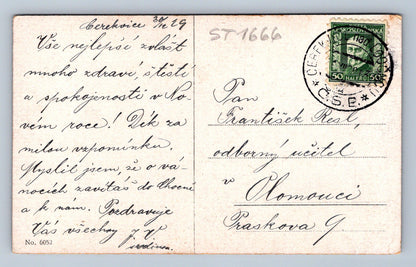 Cerekvice 30/12 29
ST 1666
Vše nejlepší zvlášť
mnoho zdraví, štěstí
a spokojenosti v No-
vém roce! Dík za
milou vzpomínku.
Myslil jsem, že o vá-
nocích zavítáš do Chocně
a k nám. Pozdravuje
Vás všechny
No. 6051
50 50
HALÉŘŮ
Č.S.P.
Pan
František Resl,
odborný učitel
v Olomouci
Praskova 9